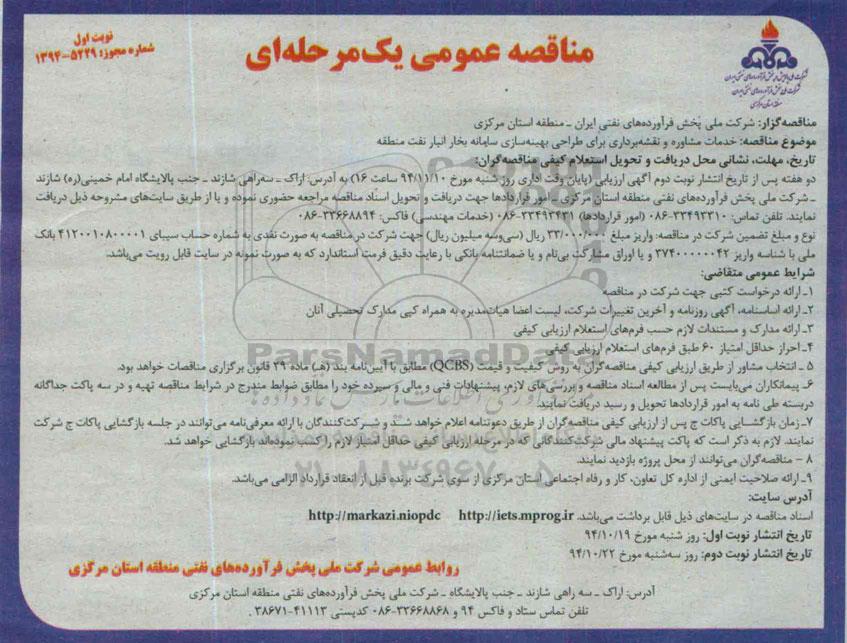 نوبت اول
شماره مجوز: ۵۲۲۹-۱۳۹۴
مناقصه عمومی یک‌مرحله‌ای
شرکت ملی پالایش و پخش فرآورده‌های نفتی ایران
شرکت ملی پخش فرآورده‌های نفتی ایران
منطقه استان مرکزی
مناقصه‌گزار: شرکت ملی پخش فرآورده‌های نفتی ایران ـ منطقه استان مرکزی
موضوع مناقصه: خدمات مشاوره و نقشه‌برداری برای طراحی بهینه‌سازی سامانه بخار انبار نفت منطقه
تاریخ، مهلت، نشانی محل دریافت و تحویل استعلام کیفی مناقصه‌گران:
دو هفته پس از تاریخ انتشار نوبت دوم آگهی ارزیابی (پایان وقت اداری روز شنبه مورخ ۹۴/۱۱/۱۰ ساعت ۱۶) به آدرس: اراک ـ سه‌راهی شازند ـ جنب پالایشگاه امام خمینی(ره) شازند
ـ شرکت ملی پخش فرآورده‌های نفتی منطقه استان مرکزی ـ امور قراردادها جهت دریافت و تحویل اسناد مناقصه مراجعه حضوری نموده و یا از طریق سایت‌های مشروحه ذیل دریافت
نمایند. تلفن تماس: ۳۳۴۹۳۳۱۰-۰۸۶ (امور قراردادها) ۳۳۴۹۳۴۳۱-۰۸۶ (خدمات مهندسی) فاکس: ۳۳۶۶۸۸۹۴-۰۸۶
نوع و مبلغ تضمین شرکت در مناقصه: واریز مبلغ ۳۳/۰۰۰/۰۰۰ ریال (سی‌وسه میلیون ریال) جهت شرکت در مناقصه به صورت نقدی به شماره حساب سیبای ۴۱۲۰۰۱۰۸۰۰۰۰۱ بانک
ملی با شناسه واریز ۳۷۴۰۰۰۰۰۰۴۲ و یا اوراق مشارکت بی‌نام و یا ضمانتنامه بانکی با رعایت دقیق فرمت استاندارد که به صورت نمونه در سایت قابل رویت می‌باشد.
شرایط عمومی متقاضی:
۱ـ ارائه درخواست کتبی جهت شرکت در مناقصه
۲ـ ارائه اساسنامه، آگهی روزنامه و آخرین تغییرات شرکت، لیست اعضا هیات‌مدیره به همراه کپی مدارک تحصیلی آنان
۳ـ ارائه مدارک و مستندات لازم حسب فرم‌های استعلام ارزیابی کیفی
۴ـ احراز حداقل امتیاز ۶۰ طبق فرم‌های استعلام ارزیابی کیفی
۵ ـ انتخاب مشاور از طریق ارزیابی کیفی مناقصه‌گران به روش کیفیت و قیمت (QCBS) مطابق با آیین‌نامه بند (هـ) ماده ۲۹ قانون برگزاری مناقصات خواهد بود.
۶ـ پیمانکاران می‌بایست پس از مطالعه اسناد مناقصه و بررسی‌های لازم، پیشنهادات فنی و مالی و سپرده خود را مطابق ضوابط مندرج در شرایط مناقصه تهیه و در سه پاکت جداگانه
دربسته طی نامه به امور قراردادها تحویل و رسید دریافت نمایند.
۷ـ زمان بازگشایی پاکات ج پس از ارزیابی کیفی مناقصه‌گران از طریق دعوتنامه اعلام خواهد شد و شرکت‌کنندگان با ارائه معرفی‌نامه می‌توانند در جلسه بازگشایی پاکات ج شرکت
نمایند. لازم به ذکر است که پاکت پیشنهاد مالی شرکت‌کنندگانی که در مرحله ارزیابی کیفی حداقل امتیاز لازم را کسب نموده‌اند بازگشایی خواهد شد.
۸ ـ مناقصه‌گران می‌توانند از محل پروژه بازدید نمایند.
۹ـ ارائه صلاحیت ایمنی از اداره کل تعاون، کار و رفاه اجتماعی استان مرکزی از سوی شرکت برنده قبل از انعقاد قرارداد الزامی می‌باشد.
آدرس سایت:
اسناد مناقصه در سایت‌های ذیل قابل برداشت می‌باشد. http://iets.mprog.ir http://markazi.niopdc
تاریخ انتشار نوبت اول: روز شنبه مورخ ۹۴/۱۰/۱۹
تاریخ انتشار نوبت دوم: روز سه‌شنبه مورخ ۹۴/۱۰/۲۲
روابط عمومی شرکت ملی پخش فرآورده‌های نفتی منطقه استان مرکزی
آدرس: اراک ـ سه راهی شازند ـ جنب پالایشگاه ـ شرکت ملی پخش فرآورده‌های نفتی منطقه استان مرکزی
تلفن تماس ستاد و فاکس ۹۴ و ۳۳۶۶۸۸۶۸-۰۸۶ کدپستی ۴۱۱۱۳-۳۸۶۷۱
ParsNamadData
۰۲۱-۸۸۳۴۹۶۷۰-۵